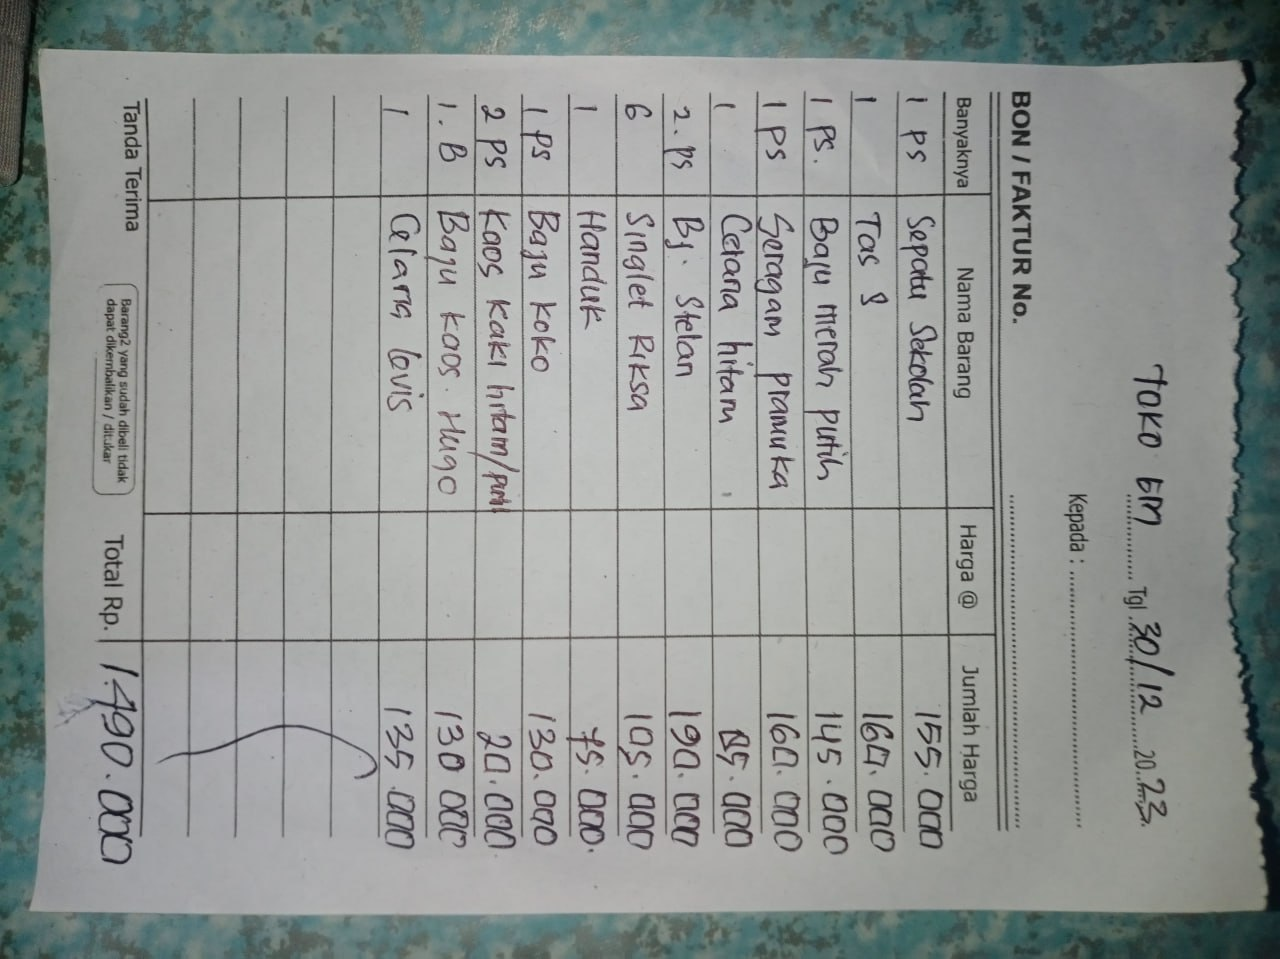 TOKO EM Tgl. 30/12 2023.
Kepada :
BON / FAKTUR No.
Banyaknya Nama Barang Harga @ Jumlah Harga
1 ps Sepatu Sekolah 155.000
1 Tas S 160.000
1 ps. Baju merah putih 145.000
1 ps Seragam pramuka 160.000
1 Celana hitam 85.000
2. ps Bj. Stelan 190.000
6 Singlet Riksa 105.000
1 Handuk 75.000.
1 ps Baju Koko 130.000
2 ps Kaos Kaki hitam/putih 20.000
1. B Baju Kaos. Hugo 130.000
1 Celana levis 135.000
Tanda Terima
Barang2 yang sudah dibeli tidak
dapat dikembalikan / ditukar
Total Rp. 1.490.000